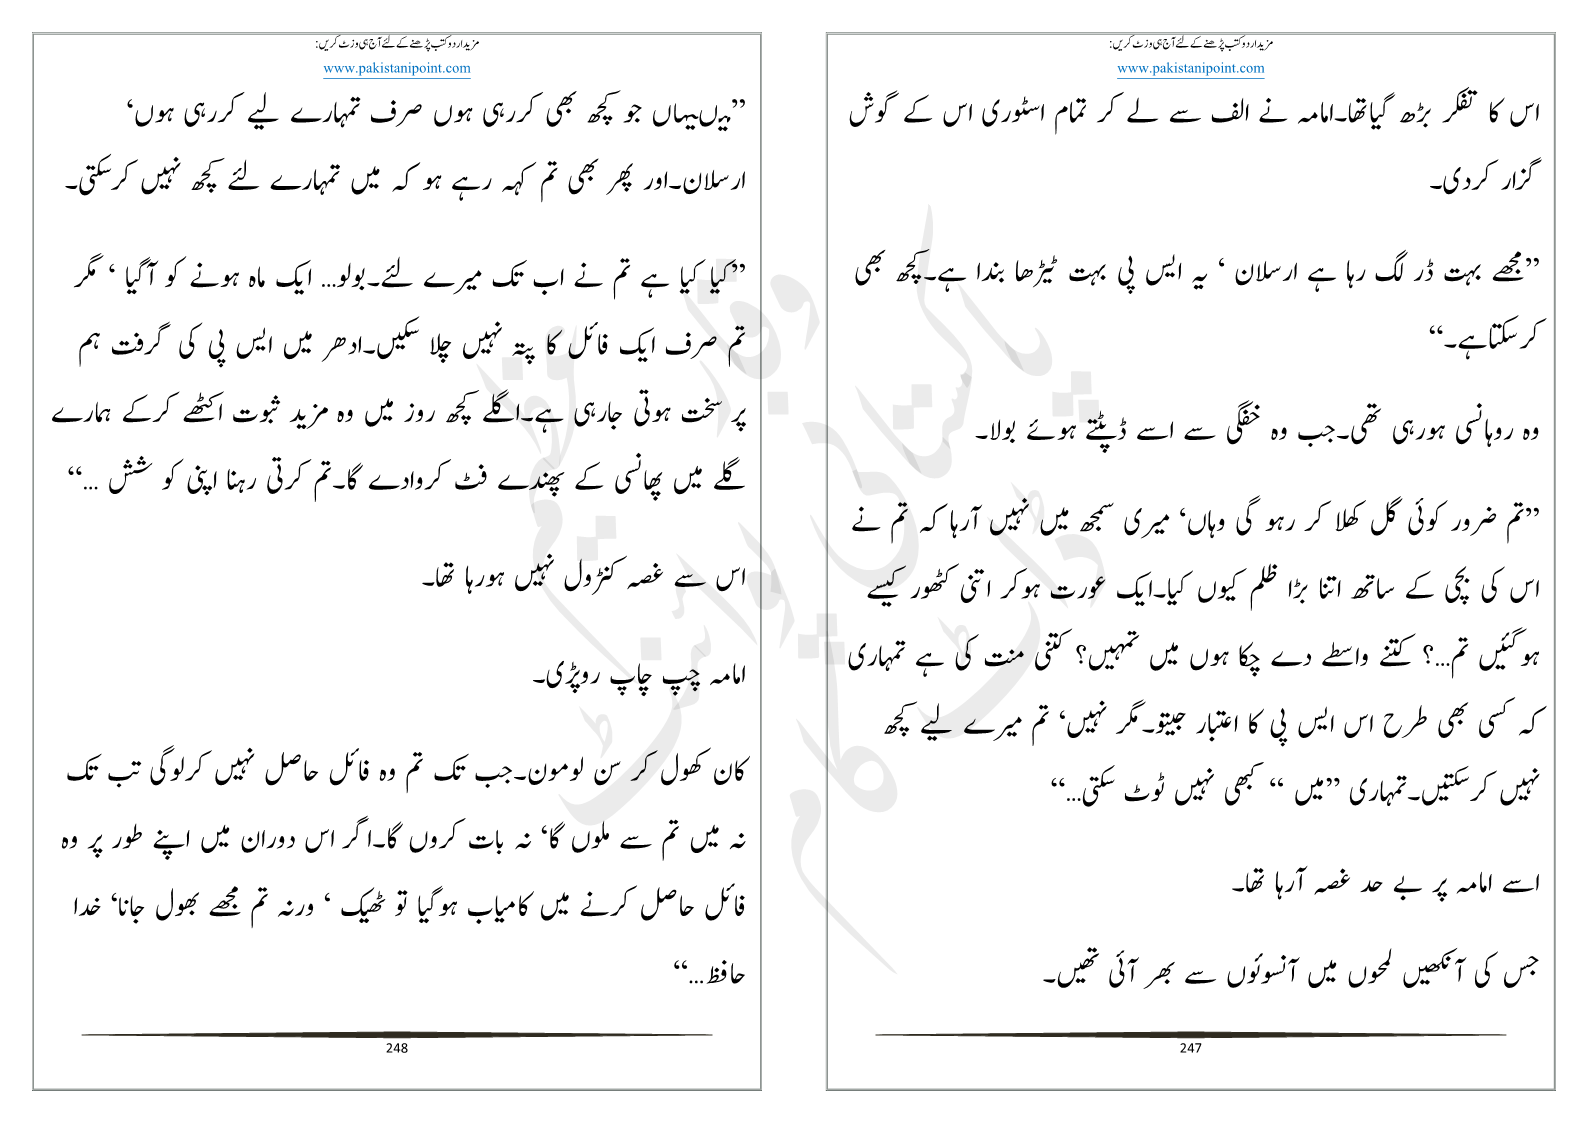 مزید اردو کتب پڑھنے کے لئے آج ہی وزٹ کریں:
www.pakistanipoint.com
اس کا تفکر بڑھ گیاتھا۔امامہ نے الف سے لے کر تمام اسٹوری اس کے گوش
گزار کردی۔
”مجھے بہت ڈر لگ رہا ہے ارسلان ‘ یہ ایس پی بہت ٹیڑھا بندا ہے۔کچھ بھی
کرسکتاہے۔“
وہ روہانسی ہورہی تھی۔جب وہ خفگی سے اسے ڈپٹتے ہوئے بولا۔
”تم ضرور کوئی گل کھلا کر رہو گی وہاں‘ میری سمجھ میں نہیں آرہا کہ تم نے
اس کی بچی کے ساتھ اتنا بڑا ظلم کیوں کیا۔ایک عورت ہوکر اتنی کٹھور کیسے
ہوگئیں تم...؟ کتنے واسطے دے چکا ہوں میں تمہیں؟ کتنی منت کی ہے تمہاری
کہ کسی بھی طرح اس ایس پی کا اعتبار جیتو۔مگر نہیں‘ تم میرے لیے کچھ
نہیں کرسکتیں۔تمہاری ”میں “ کبھی نہیں ٹوٹ سکتی...“
اسے امامہ پر بے حد غصہ آرہا تھا۔
جس کی آنکھیں لمحوں میں آنسوئوں سے بھر آئی تھیں۔
247
مزید اردو کتب پڑھنے کے لئے آج ہی وزٹ کریں:
www.pakistanipoint.com
”میںیہاں جو کچھ بھی کررہی ہوں صرف تمہارے لیے کررہی ہوں‘
ارسلان۔اور پھر بھی تم کہہ رہے ہو کہ میں تمہارے لئے کچھ نہیں کرسکتی۔
”کیا کیا ہے تم نے اب تک میرے لئے۔بولو... ایک ماہ ہونے کو آگیا ‘ مگر
تم صرف ایک فائل کا پتہ نہیں چلا سکیں۔ادھر میں ایس پی کی گرفت ہم
پر سخت ہوتی جارہی ہے۔اگلے کچھ روز میں وہ مزید ثبوت اکٹھے کرکے ہمارے
گلے میں پھانسی کے پھندے فٹ کروادے گا۔تم کرتی رہنا اپنی کو شش ...“
اس سے غصہ کنڑول نہیں ہورہا تھا۔
امامہ چپ چاپ روپڑی۔
کان کھول کر سن لومون۔جب تک تم وہ فائل حاصل نہیں کرلوگی تب تک
نہ میں تم سے ملوں گا‘ نہ بات کروں گا۔اگر اس دوران میں اپنے طور پر وہ
فائل حاصل کرنے میں کامیاب ہوگیا تو ٹھیک ‘ ورنہ تم مجھے بھول جانا‘ خدا
حافظ...“
248